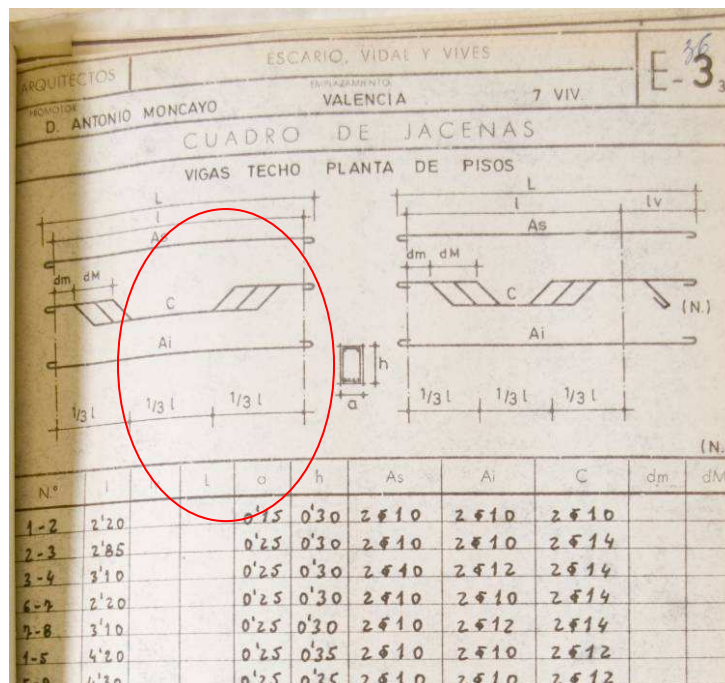 ARQUITECTOS
ESCARIO, VIDAL Y VIVES
E-3
36
PROMOTOR
D. ANTONIO MONCAYO
EMPLAZAMIENTO
VALENCIA
7 VIV.
CUADRO DE JACENAS
VIGAS TECHO PLANTA DE PISOS
L
l
As
dm dM
C
Ai
1/3 l 1/3 l 1/3 l
h
a
L
l lv
As
dm dM
C
(N.)
Ai
1/3 l 1/3 l 1/3 l
(N.
N.º l L a h As Ai C dm dM
1-2 2'20 0'15 0'30 2ϕ10 2ϕ10 2ϕ10
2-3 2'85 0'25 0'30 2ϕ10 2ϕ10 2ϕ14
3-4 3'10 0'25 0'30 2ϕ10 2ϕ12 2ϕ14
6-7 2'20 0'25 0'30 2ϕ10 2ϕ10 2ϕ14
7-8 3'10 0'25 0'30 2ϕ10 2ϕ12 2ϕ14
1-5 4'20 0'25 0'35 2ϕ10 2ϕ10 2ϕ12
0'25 0'35 2ϕ10 2ϕ10 2ϕ12